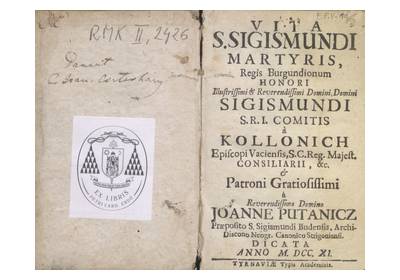 RMK II, 2426
EX LIBRIS
PETRI CARD. ERDŐ
VITA
S. SIGISMUNDI
MARTYRIS,
Regis Burgundionum
HONORI
Illustrissimi & Reverendissimi Domini, Domini
SIGISMUNDI
S. R. I. COMITIS
à
KOLLONICH
Episcopi Vaciensis, S. C. Reg. Majest.
CONSILIARII, &c.
&
Patroni Gratiosissimi
à
Reverendissimo Domino
JOANNE PUTANICZ
Præposito S. Sigismundi Budensis, Archi-
Diacono Neogr. Canonico Strigoniensi.
DICATA
ANNO M. DCC. XI.
TYRNAVIÆ Typis Academicis.